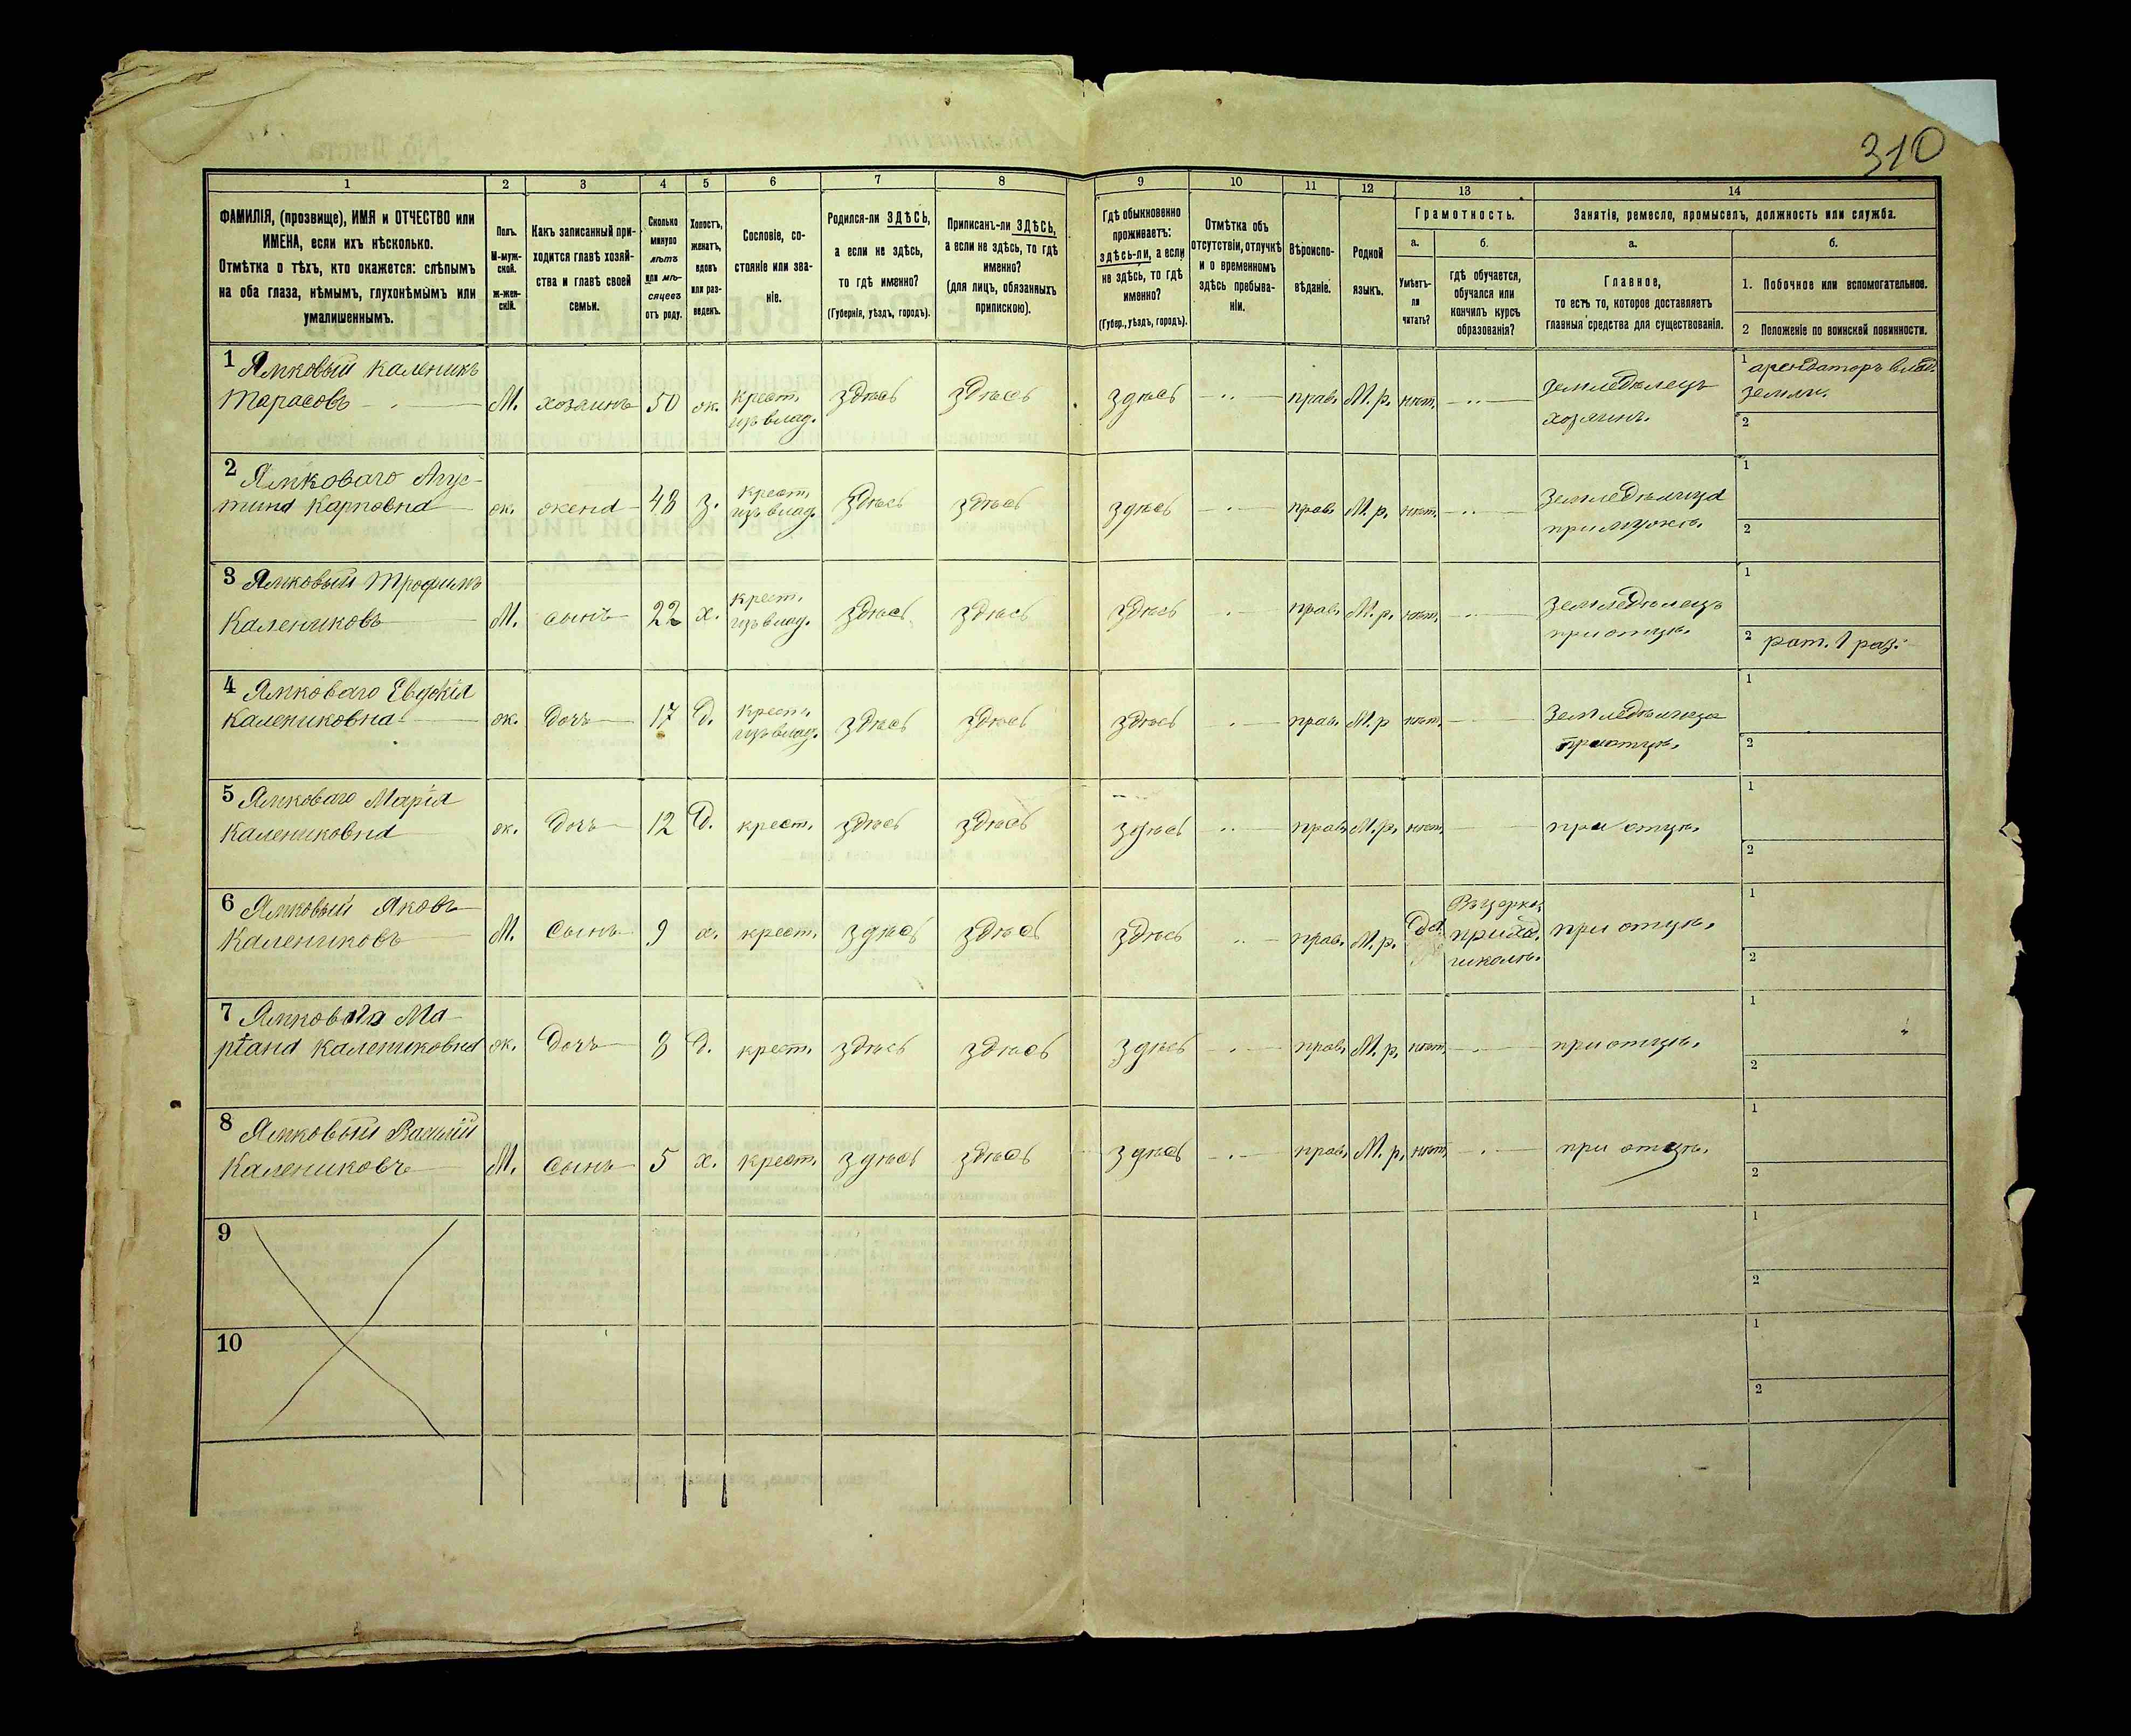 310
1
2
3
4
5
6
7
8
9
10
11
12
13
14
ФАМИЛІЯ, (прозвище), ИМЯ и ОТЧЕСТВО или
ИМЕНА, если ихъ нѣсколько.
Отмѣтка о тѣхъ, кто окажется: слѣпымъ
на оба глаза, нѣмымъ, глухонѣмымъ или
умалишеннымъ.
Полъ.
М-муж-
ской.
Ж-жен-
скій.
Какъ записанный при-
ходится главѣ хозяй-
ства и главѣ своей
семьи.
Сколько
минуло
лѣтъ
или мѣ-
сяцевъ
отъ роду.
Холостъ,
женатъ,
вдовъ
или раз-
веденъ.
Сословіе, со-
стояніе или зва-
ніе.
Родился-ли ЗДѢСЬ,
а если не здѣсь,
то гдѣ именно?
(Губернія, уѣздъ, городъ).
Приписанъ-ли ЗДѢСЬ,
а если не здѣсь, то гдѣ
именно?
(для лицъ, обязанныхъ
припискою).
Гдѣ обыкновенно
проживаетъ:
здѣсь-ли, а если
не здѣсь, то гдѣ
именно?
(Губер., уѣздъ, городъ).
Отмѣтка объ
отсутствіи, отлучкѣ
и о временномъ
здѣсь пребыва-
ніи.
Вѣроиспо-
вѣданіе.
Родной
языкъ.
Грамотность.
а.
б.
Умѣетъ-
ли
читать?
гдѣ обучается,
обучался или
кончилъ курсъ
образованія?
Занятіе, ремесло, промыселъ, должность или служба.
а.
б.
Главное,
то есть то, которое доставляетъ
главныя средства для существованія.
1. Побочное или вспомогательное.
2 Положеніе по воинской повинности.
1 Ямковый Каленикъ
Тарасовъ
М. хозяинъ 50 ж. крест.
изъ влад.
здѣсь здѣсь здѣсь прав. М.р. нѣт.
Земледѣлецъ
хозяинъ.
1 арендаторъ влад.
земли.
2
2 Ямковаго Агус-
тина Карповна
ж. жена 48 з. крест.
изъ влад.
здѣсь здѣсь здѣсь прав. М.р. нѣт.
Земледѣлица
при мужѣ.
1
2
3 Ямковый Трофимъ
Калениковъ
М. сынъ 22 х. крест.
изъ влад.
здѣсь здѣсь здѣсь прав. М.р. нѣт.
Земледѣлецъ
при отцѣ.
1
2 рат. 1 раз:
4 Ямковаго Евдокія
Калениковна
ж. дочь 17 д. крест.
изъ влад.
здѣсь здѣсь здѣсь прав. М.р нѣт.
Земледѣлица
при отцѣ.
1
2
5 Ямковаго Марія
Калениковна
ж. дочь 12 д. крест. здѣсь здѣсь здѣсь прав. М.р. нѣт. при отцѣ.
1
2
6 Ямковый Яковъ
Калениковъ
М. сынъ 9 х. крест. здѣсь здѣсь здѣсь прав. М.р. да.
Въ церков.
приход.
школѣ.
при отцѣ.
1
2
7 Ямковаго Ма-
ріана Калениковна
ж. дочь 8 д. крест. здѣсь здѣсь здѣсь прав. М.р. нѣт. при отцѣ.
1
2
8 Ямковый Василій
Калениковъ
М. сынъ 5 х. крест. здѣсь здѣсь здѣсь прав. М.р. нѣт. при отцѣ.
1
2
9
1
2
10
1
2